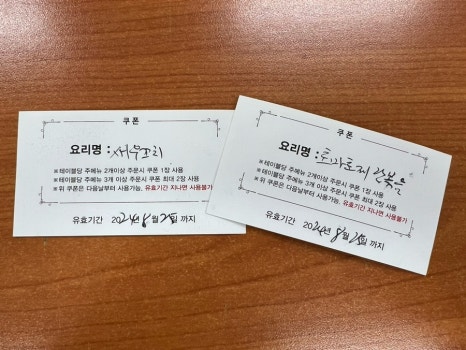 쿠폰
요리명 : 새우초리
※ 테이블당 주메뉴 2개이상 주문시 쿠폰 1장 사용
※ 테이블당 주메뉴 3개 이상 주문시 쿠폰 최대 2장 사용
※ 위 쿠폰은 다음날부터 사용가능, 유효기간 지나면 사용불가
유효기간 2024年 8월 25日 까지
쿠폰
요리명 : 토마토계란볶음
※ 테이블당 주메뉴 2개이상 주문시 쿠폰 1장 사용
※ 테이블당 주메뉴 3개 이상 주문시 쿠폰 최대 2장 사용
※ 위 쿠폰은 다음날부터 사용가능, 유효기간 지나면 사용불가
유효기간 2024년 8월 25일 까지